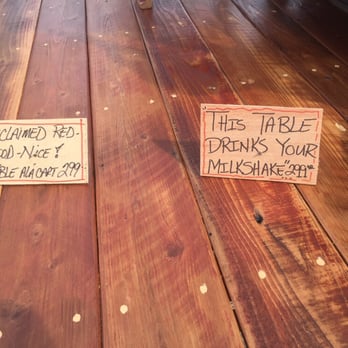 CLAIMED RED-
OOD-NICE!
BLE ALA CART 299
THIS TABLE
DRINKS YOUR
MILKSHAKE "299"